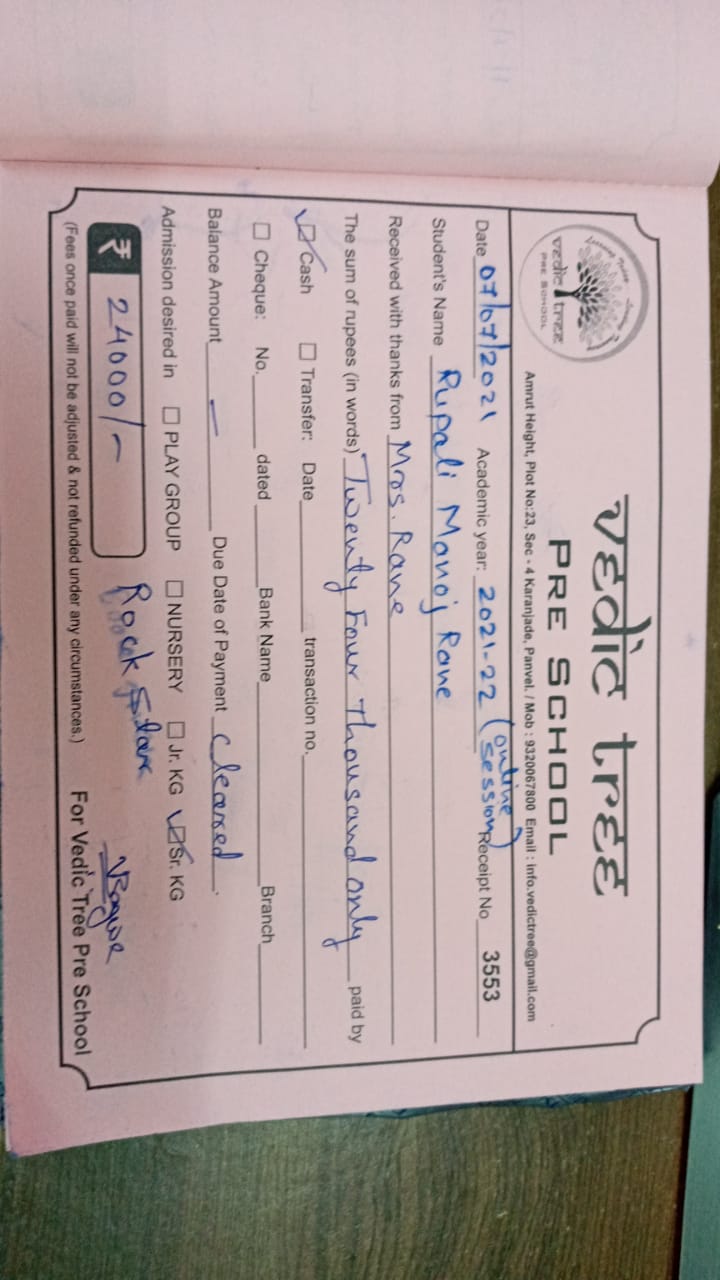 vedic tree
PRE SCHOOL
vedic tree
PRE SCHOOL
Amrut Height, Plot No:23, Sec - 4 Karanjade, Panvel. / Mob : 9320067800 Email : info.vedictree@gmail.com
Date 07/07/2021 Academic year: 2021-22 (online session) Receipt No 3553
Student's Name Rupali Manoj Rane
Received with thanks from Mrs. Rane
The sum of rupees (in words) Twenty Four Thousand only paid by
Cash Transfer: Date transaction no.
Cheque: No. dated Bank Name Branch
Balance Amount — Due Date of Payment Cleared.
Admission desired in PLAY GROUP NURSERY Jr. KG Sr. KG
₹ 24000/- Rock Star
(Fees once paid will not be adjusted & not refunded under any circumstances.) For Vedic Tree Pre School